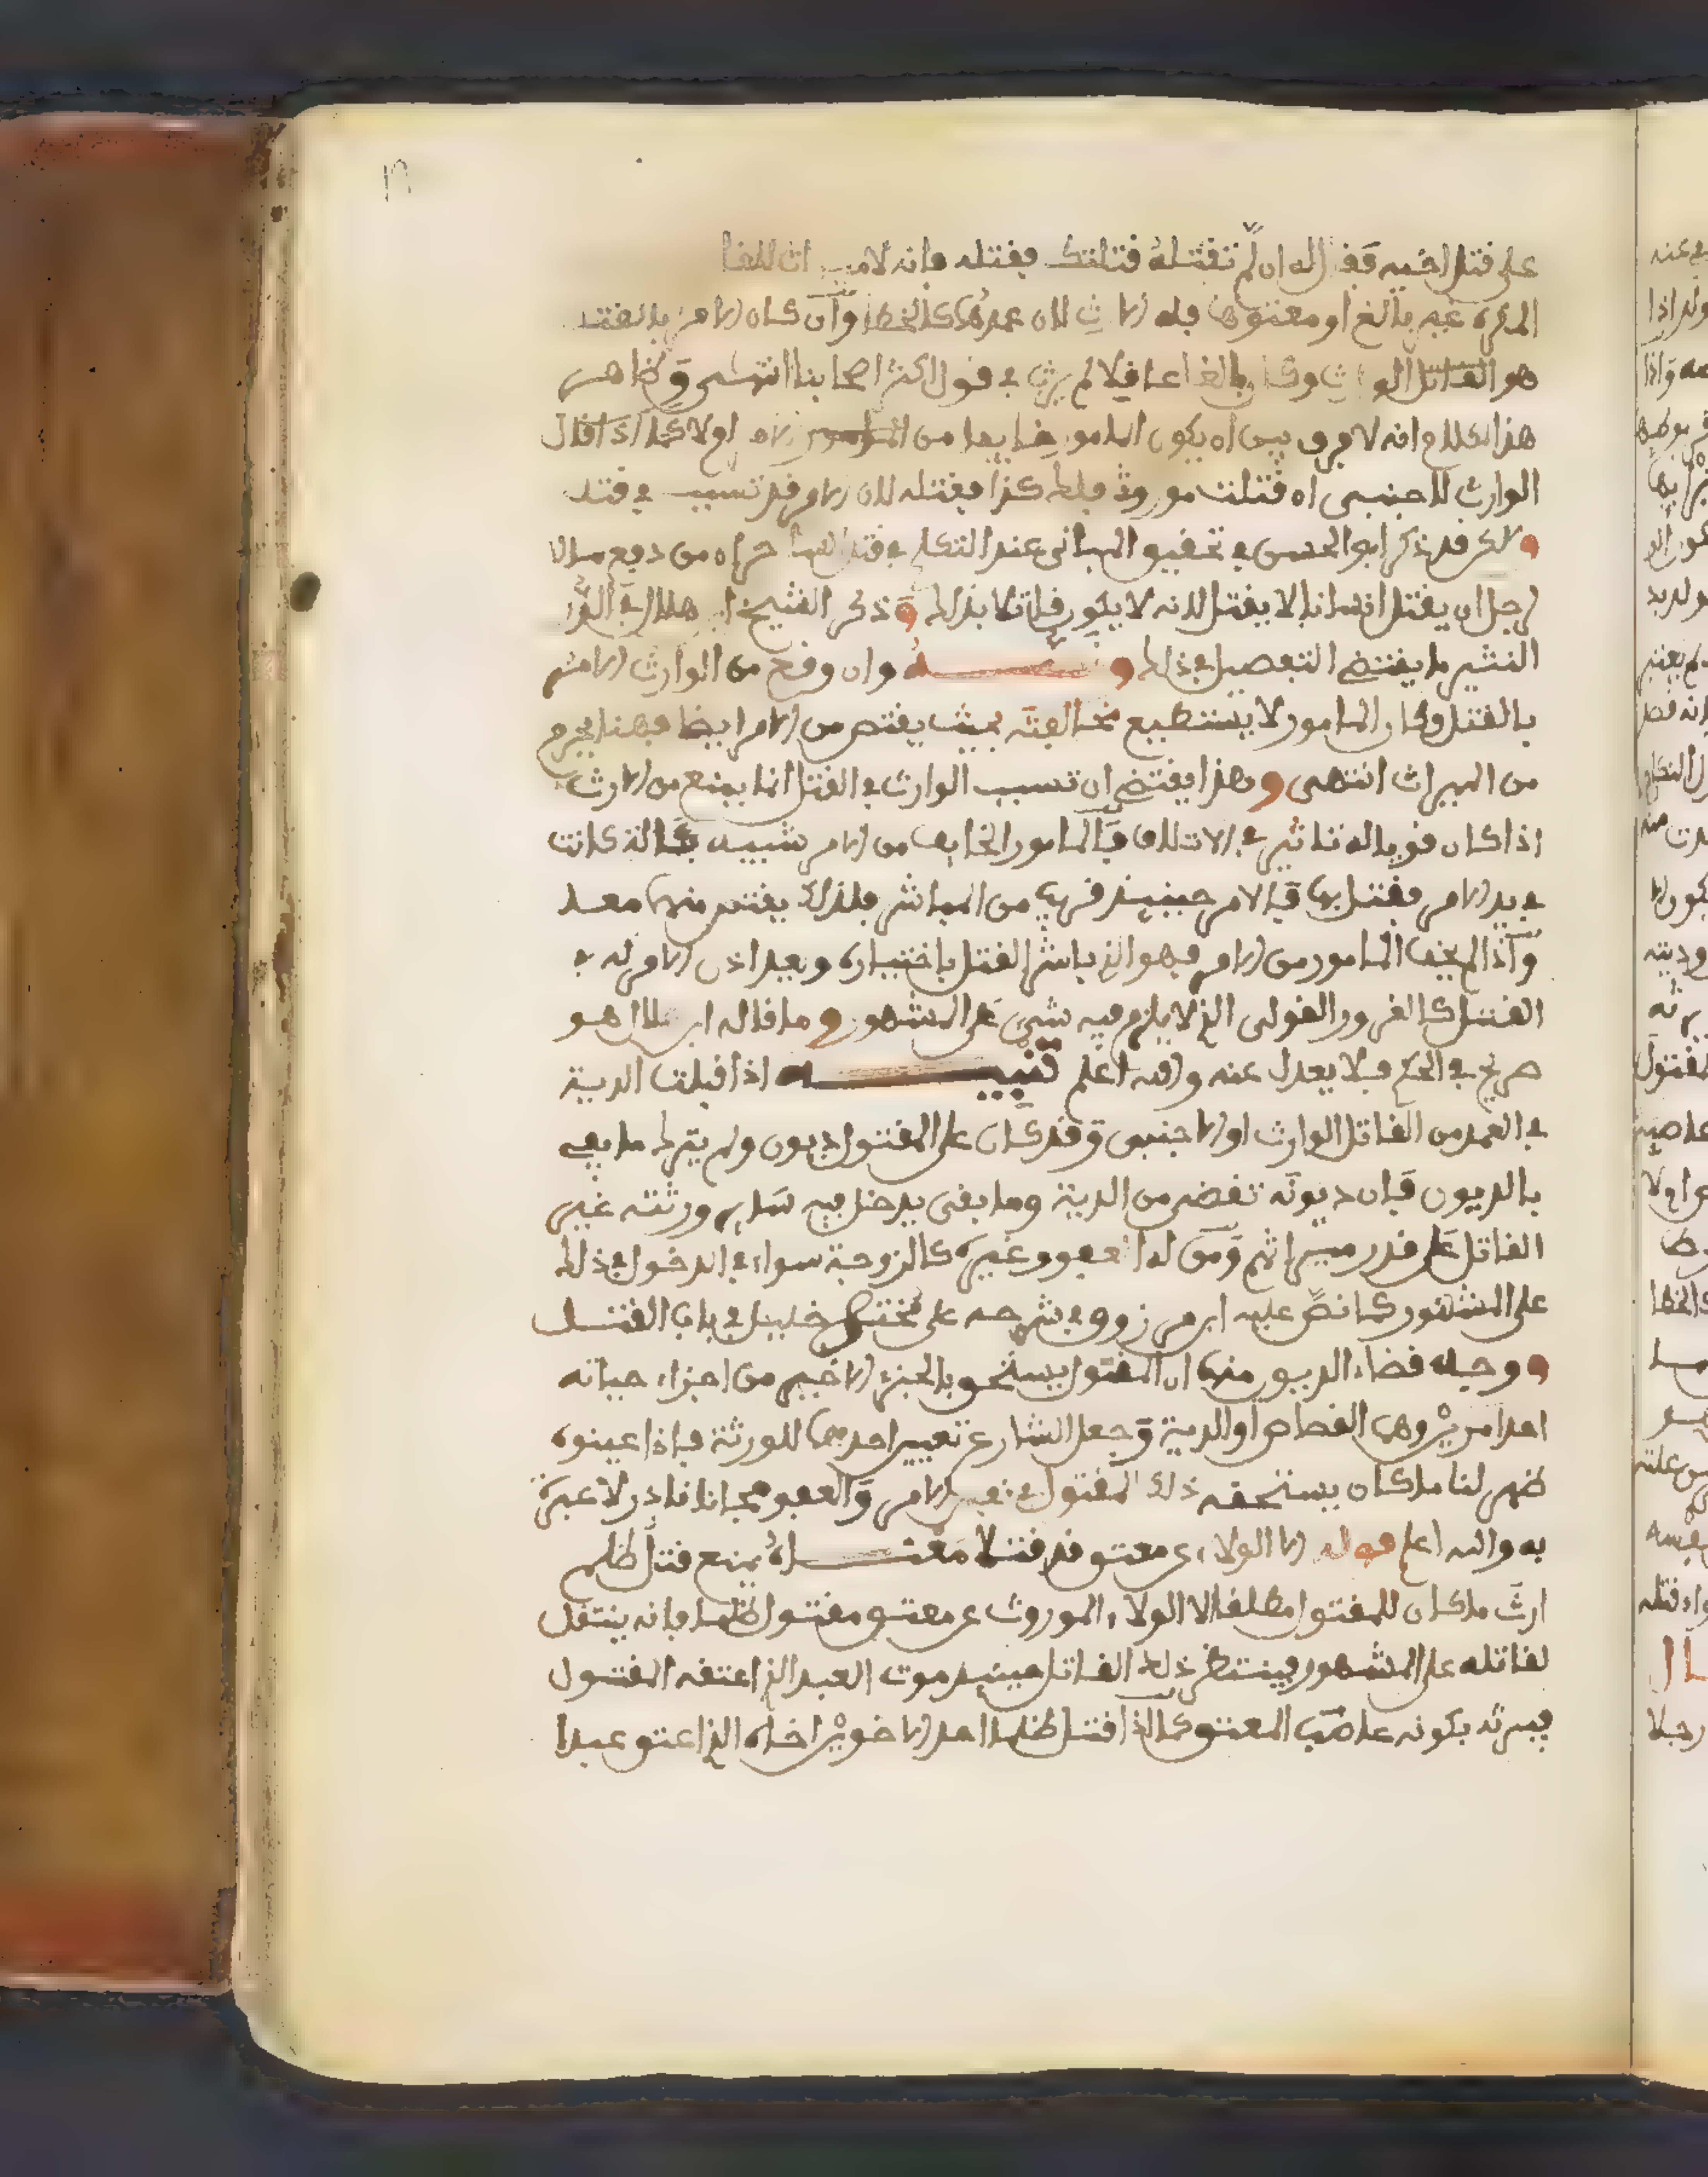 على قتل اخيه فقال له ان لم تقتله قتلتك فقتله فانه لا ميراث للقا
المكره غير بالغ او معتوها فله الارث لان عمدهما كالخطا وان كان الامر بالقتل
هو القاتل الوارث وكان بالغا عاقلا لم يرث في قول اكثر اصحابنا انتهى وظاهر
هذا الكلام انه لا فرق بين ان يكون المامور خايفا من الامر ام لا كما اذا قال
الوارث لاجنبي ان قتلت موروثي فلك كذا فقتله لان الامر قد تسبب في قتله
ولكن قد ذكر ابو الحسن في تحقيق المباني عند التكلم في قتل العمد ان من دفع مالا
لرجل ان يقتل انسانا لا يقتل لانه لا يكون قاتلا بذلك وذكر الشيخ ابن هلال في الدر
النثير ما يقتضي التفصيل في ذلك ونصه وان وقع من الوارث الامر
بالقتل وكان المامور لا يستطيع مخالفته بحيث يقتص من الامر ايضا فهنا يحرم
من الميراث انتهى وهذا يقتضي ان تسبب الوارث في القتل انما يمنع من الارث
اذا كان قويا له تاثير في الاتلاف فالمامور الخايف من الامر شبيه بآلة كانت
في يد الامر فقتل بها فالامر حينيذ قريب من المباشر فلذلك يقتص منه معه
واذا لم يخف المامور من الامر فهو الذي باشر القتل باختياره ويعد اذن الامر له في
القتل كالغرور القولي الذي لا يلزم فيه شيء على المشهور وما قاله ابن هلال هو
صريح في الحكم فلا يعدل عنه والله اعلم تنبيه اذا قبلت الدية
في العمد من القاتل الوارث او الاجنبي وقد كان على المقتول ديون ولم يترك ما يفي
بالديون فان ديونه تقضى من الدية وما بقي يدخل فيه ساير ورثته غير
القاتل على قدر ميراثهم ومن له العفو وغيره كالزوجة سواء في الدخول في ذلك
على المشهور كما نص عليه ابن مرزوق في شرحه على مختصر خليل في باب القتل
ووجه قضاء الديون منها ان المقتول يستحق بالجزء الاخير من اجزاء حياته
احد امرين وهما القصاص او الدية وجعل الشارع تعيين احدهما للورثة فاذا عينوه
ظهر لنا ما كان يستحقه ذلك المقتول في نفس الامر والعفو مجانا نادر لا عبرة
به والله اعلم قوله الا الولاء عن معتق قد قتلا معناه يمنع قتل ظلم
ارث ما كان للمقتول مطلقا الا الولاء الموروث عن معتق مقتول ظلما فانه ينتقل
لقاتله على المشهور فينتظر ذلك القاتل حينيذ موت العبد الذي اعتقه المقتول
فيرثه بكونه عاصب المعتق كما اذا قتل ظلما احد الاخوين اخاه الذي اعتق عبدا